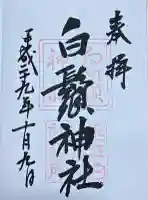 奉拝
白鬚神社
平成二十九年十月九日